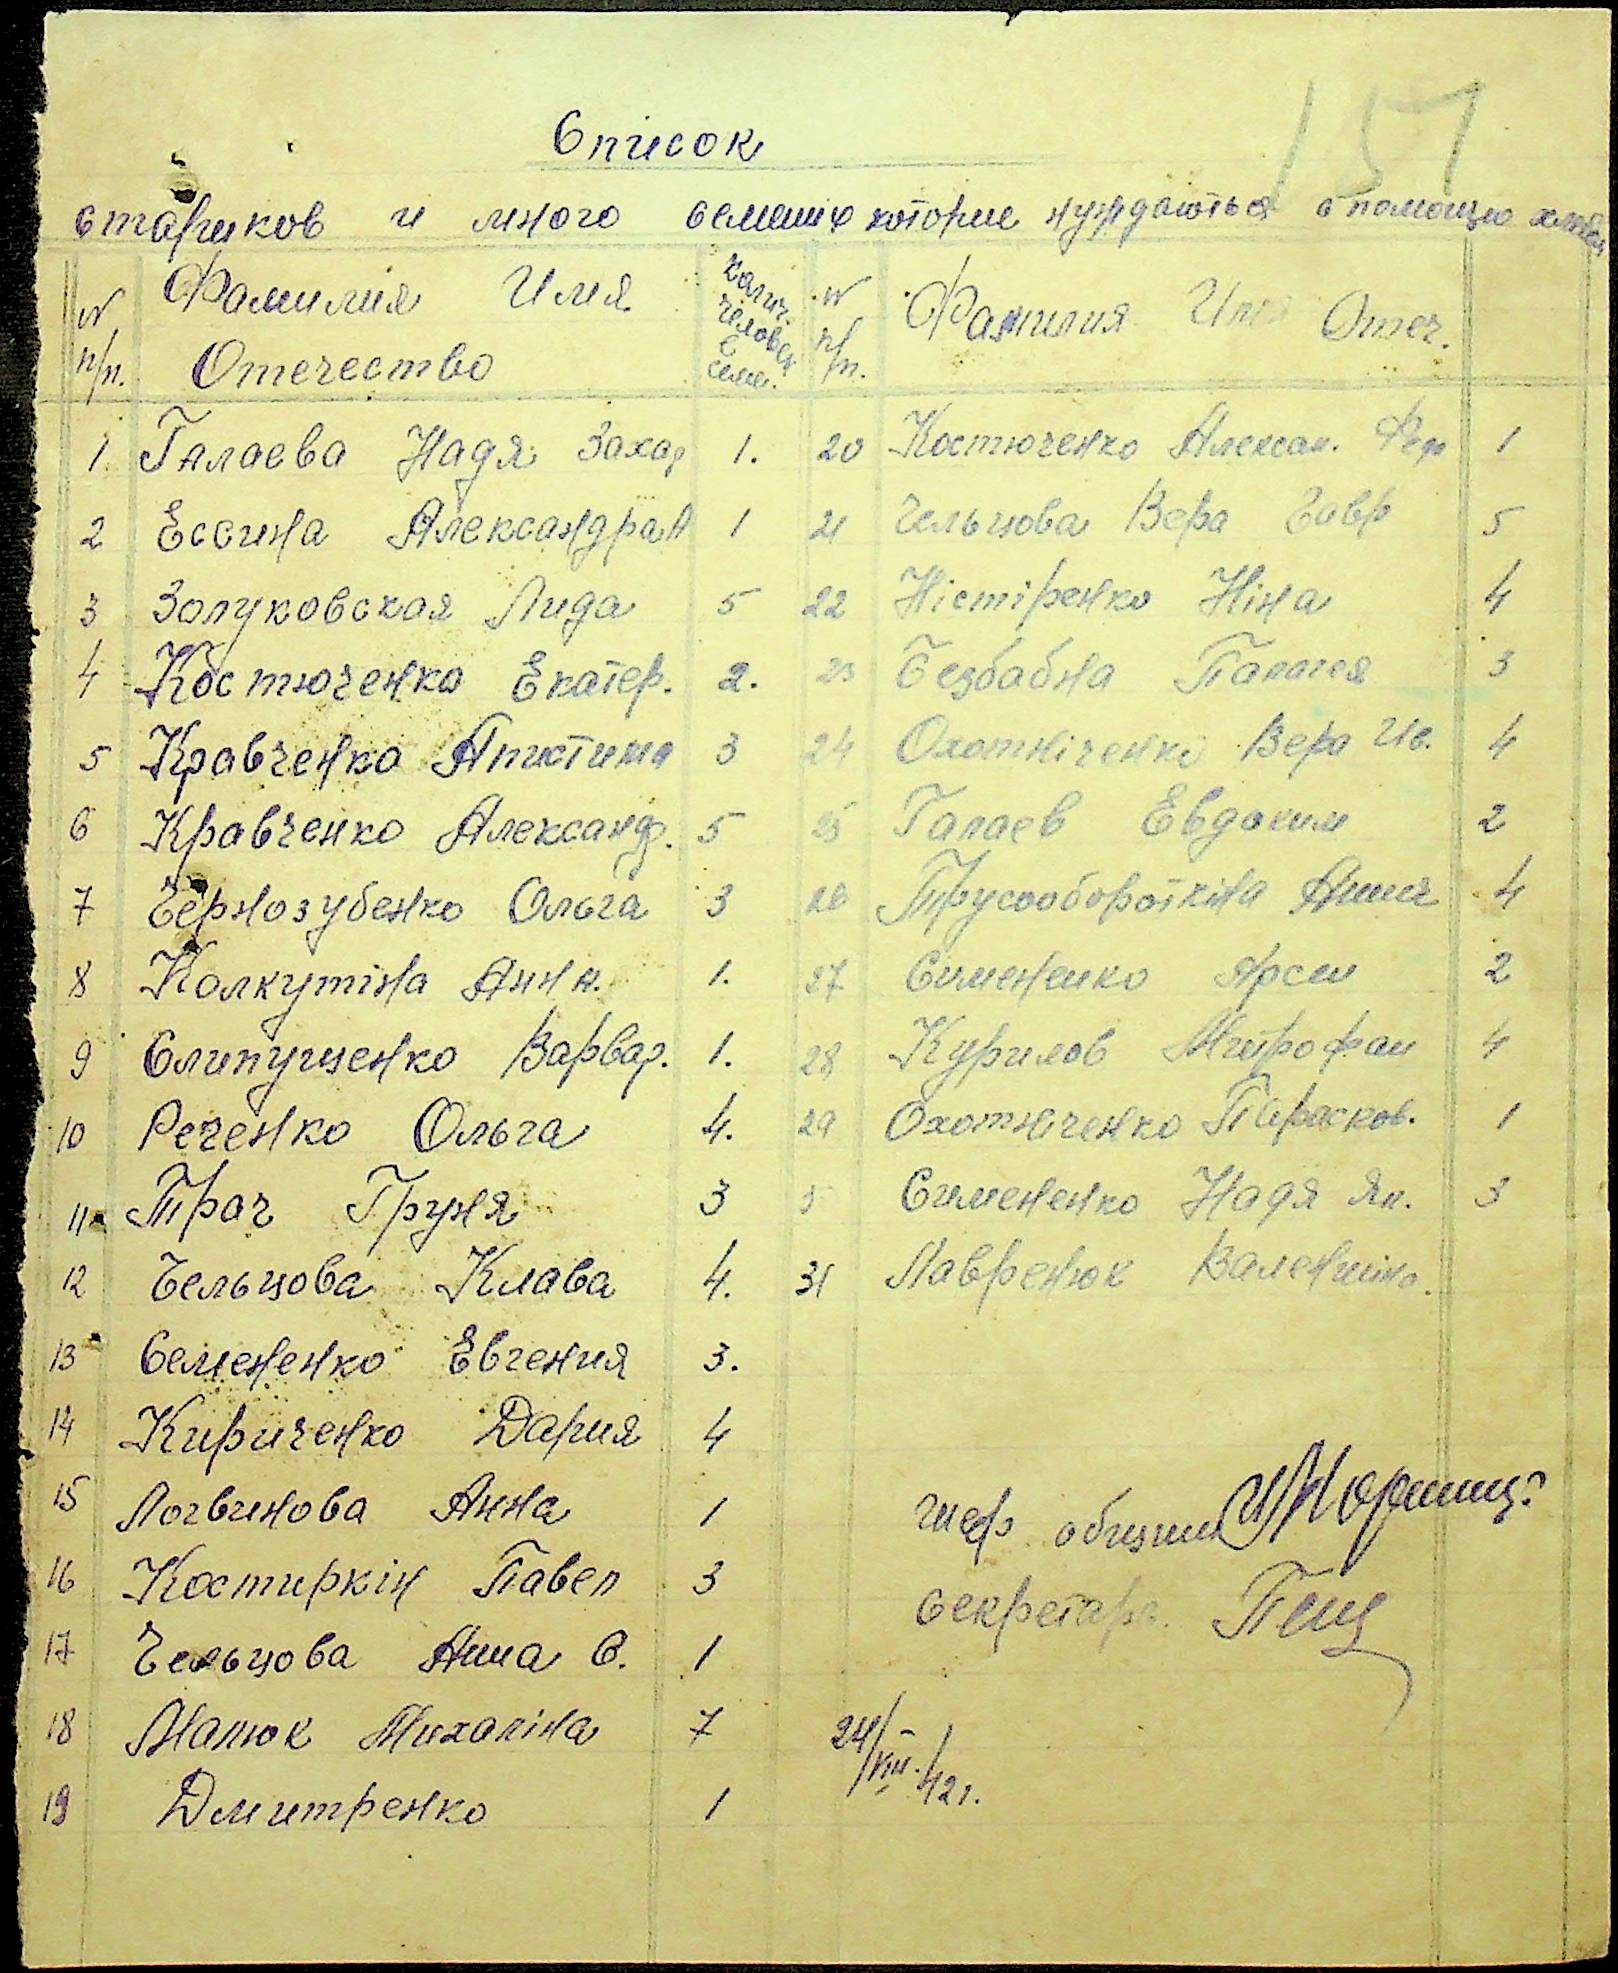 157
Список
стариков и много семених которие нуждаються в помощю хлебом
№ п/п. Фамилия Имя Отечество Колич. человек в семе. № п/п. Фамилия Имя Отеч.
1 Галаева Надя Захар 1. 20 Костюченко Алексан. Фед 1
2 Ессина Александра А 1 21 Чельцова Вера Гавр 5
3 Золуковская Лида 5 22 Ністіренко Ніна 4
4 Костюченко Екатер. 2. 23 Безбабна Палагея 3
5 Кравченко Апистима 3 24 Охотніченко Вера Ив. 4
6 Кравченко Александ. 5 25 Галаев Евдоким 2
7 Чернозубенко Ольга 3 26 Трусообороткіна Анна 4
8 Колкутіна Анна. 1. 27 Симененко Арсен 2
9 Слипущенко Варвар. 1. 28 Курилов Митрофан 4
10 Реченко Ольга 4. 29 Охотніченко Парасков. 1
11 Трач Груня 3 Сименненко Надя Як. 3
12 Чельцова Клава 4. 31 Лавренюк Валентіна.
13 Семененко Евгения 3.
14 Кириченко Дария 4
15 Логвинова Анна 1
16 Костиркін Павел 3
17 Чельцова Анна С. 1
18 Малюк Михаліна 7
19 Дмитренко 1
Шеф общини
Секретарь
24/VIII./42г.